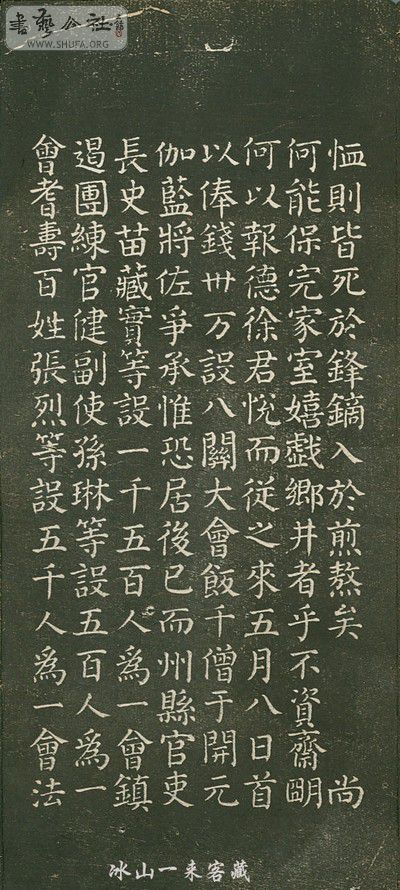 書藝公社
WWW.SHUFA.ORG
恤則皆死於鋒鏑入於煎熬矣 尚
何能保完家室嬉戲鄉井者乎不資齋明
何以報德徐君悅而從之來五月八日首
以俸錢卅万設八關大會飯千僧于開元
伽藍將佐爭承惟恐居後已而州縣官吏
長史苗藏實等設一千五百人為一會鎮
遏團練官健副使孫琳等設五百人為一
會耆壽百姓張烈等設五千人為一會法
冰山一来客藏